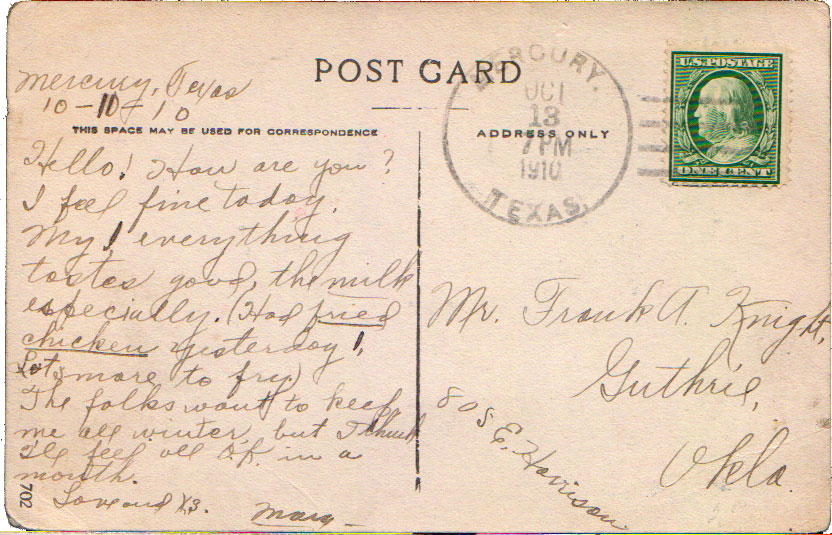 POST CARD
Mercury, Texas
10-10-10
THIS SPACE MAY BE USED FOR CORRESPONDENCE
Hello! How are you?
I feel fine today.
My! everything
tastes good, the milk
especially. (Had fried
chicken yesterday!
Lots more to fry)
The folks want to keep
me all winter, but I think
I'll feel all O.K. in a
month.
Love and Xs.
Mary
702
MERCURY,
OCT
13
7 PM
1910
TEXAS.
U.S. POSTAGE
ONE CENT
ADDRESS ONLY
Mr. Frank A. Knight,
Guthrie,
Okla.
808 E. Harrison